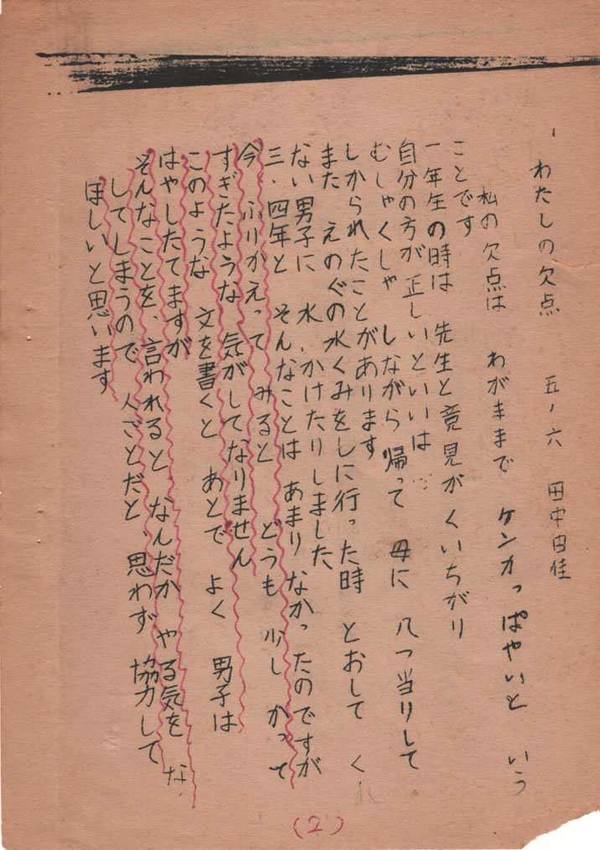 わたしの欠点 五ノ六 田中由佳
私の欠点は わがままで ケンカっぱやいと いう
ことです
一年生の時は 先生と意見が くいちがり
自分の方が正しいといいは
むしゃくしゃ しながら 帰って 母に 八つ当りして
しかられたことがあります
また えのぐの水くみをしに行った時 とおして くれ
ない男子に 水、かけたりしました
三・四年と そんなことは あまり なかったのですが
今 ふりかえって みると どうも 少し かって
すぎたような 気がしてなりません
このような 文を書くと あとで よく 男子は
はやしたてますが
そんなことを、言われると なんだか やる気を な
してしまうので 人ごとだと、思わず 協力して
ほしいと思います
(2)